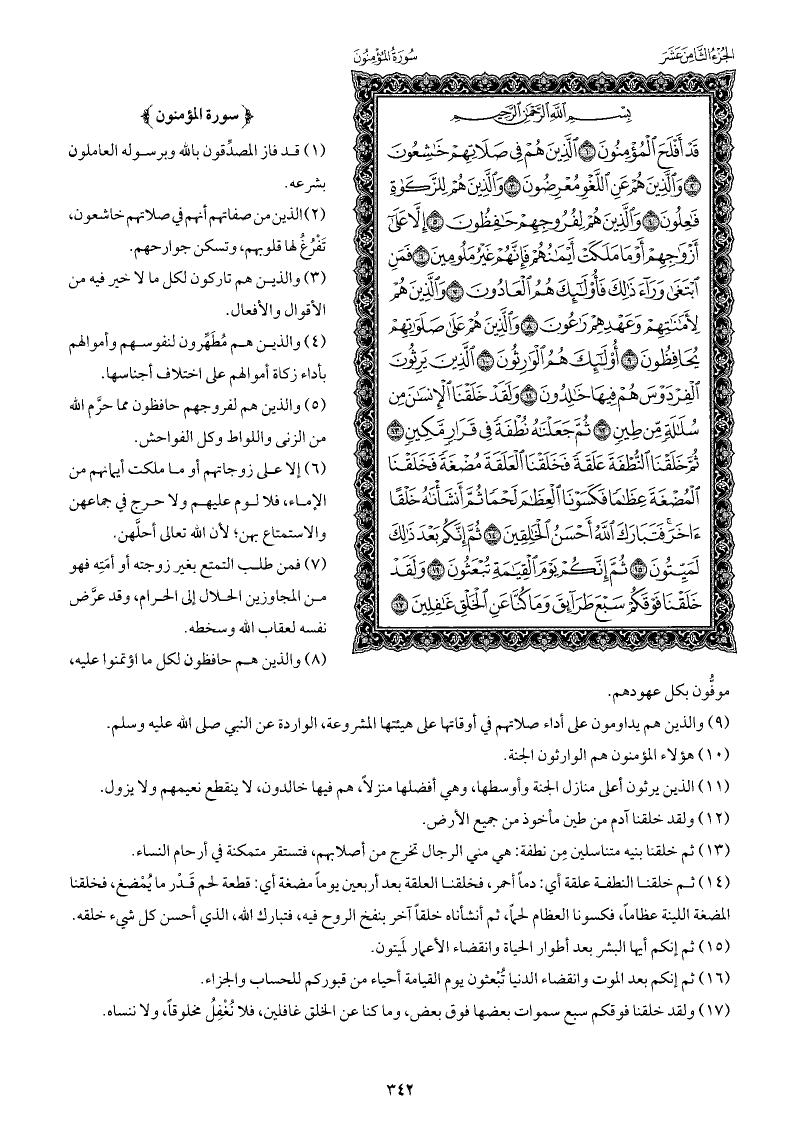 الجزء الثامن عشر
سورة المؤمنون
بِسۡمِ ٱللَّهِ ٱلرَّحۡمَٰنِ ٱلرَّحِيمِ
قَدۡ أَفۡلَحَ ٱلۡمُؤۡمِنُونَ ١ ٱلَّذِينَ هُمۡ فِي صَلَاتِهِمۡ خَٰشِعُونَ
٢ وَٱلَّذِينَ هُمۡ عَنِ ٱللَّغۡوِ مُعۡرِضُونَ ٣ وَٱلَّذِينَ هُمۡ لِلزَّكَوٰةِ
فَٰعِلُونَ ٤ وَٱلَّذِينَ هُمۡ لِفُرُوجِهِمۡ حَٰفِظُونَ ٥ إِلَّا عَلَىٰٓ
أَزۡوَٰجِهِمۡ أَوۡ مَا مَلَكَتۡ أَيۡمَٰنُهُمۡ فَإِنَّهُمۡ غَيۡرُ مَلُومِينَ ٦ فَمَنِ
ٱبۡتَغَىٰ وَرَآءَ ذَٰلِكَ فَأُوْلَٰٓئِكَ هُمُ ٱلۡعَادُونَ ٧ وَٱلَّذِينَ هُمۡ
لِأَمَٰنَٰتِهِمۡ وَعَهۡدِهِمۡ رَٰعُونَ ٨ وَٱلَّذِينَ هُمۡ عَلَىٰ صَلَوَٰتِهِمۡ
يُحَافِظُونَ ٩ أُوْلَٰٓئِكَ هُمُ ٱلۡوَٰرِثُونَ ١٠ ٱلَّذِينَ يَرِثُونَ
ٱلۡفِرۡدَوۡسَ هُمۡ فِيهَا خَٰلِدُونَ ١١ وَلَقَدۡ خَلَقۡنَا ٱلۡإِنسَٰنَ مِن
سُلَٰلَةٖ مِّن طِينٖ ١٢ ثُمَّ جَعَلۡنَٰهُ نُطۡفَةٗ فِي قَرَارٖ مَّكِينٖ ١٣
ثُمَّ خَلَقۡنَا ٱلنُّطۡفَةَ عَلَقَةٗ فَخَلَقۡنَا ٱلۡعَلَقَةَ مُضۡغَةٗ فَخَلَقۡنَا
ٱلۡمُضۡغَةَ عِظَٰمٗا فَكَسَوۡنَا ٱلۡعِظَٰمَ لَحۡمٗا ثُمَّ أَنشَأۡنَٰهُ خَلۡقًا
ءَاخَرَۚ فَتَبَارَكَ ٱللَّهُ أَحۡسَنُ ٱلۡخَٰلِقِينَ ١٤ ثُمَّ إِنَّكُم بَعۡدَ ذَٰلِكَ
لَمَيِّتُونَ ١٥ ثُمَّ إِنَّكُمۡ يَوۡمَ ٱلۡقِيَٰمَةِ تُبۡعَثُونَ ١٦ وَلَقَدۡ
خَلَقۡنَا فَوۡقَكُمۡ سَبۡعَ طَرَآئِقَ وَمَا كُنَّا عَنِ ٱلۡخَلۡقِ غَٰفِلِينَ ١٧
﴿سورة المؤمنون﴾
(١) قد فاز المصدِّقون بالله وبرسوله العاملون
بشرعه.
(٢) الذين من صفاتهم أنهم في صلاتهم خاشعون،
تَفْرُغُ لها قلوبهم، وتسكن جوارحهم.
(٣) والذين هم تاركون لكل ما لا خير فيه من
الأقوال والأفعال.
(٤) والذين هم مُطَهِّرون لنفوسهم وأموالهم
بأداء زكاة أموالهم على اختلاف أجناسها.
(٥) والذين هم لفروجهم حافظون مما حرَّم الله
من الزنى واللواط وكل الفواحش.
(٦) إلا على زوجاتهم أو ما ملكت أيمانهم من
الإماء، فلا لوم عليهم ولا حرج في جماعهن
والاستمتاع بهن؛ لأن الله تعالى أحلَّهن.
(٧) فمن طلب التمتع بغير زوجته أو أمَتِه فهو
من المجاوزين الحلال إلى الحرام، وقد عرَّض
نفسه لعقاب الله وسخطه.
(٨) والذين هم حافظون لكل ما اؤتمنوا عليه،
موفُّون بكل عهودهم.
(٩) والذين هم يداومون على أداء صلاتهم في أوقاتها على هيئتها المشروعة، الواردة عن النبي صلى الله عليه وسلم.
(١٠) هؤلاء المؤمنون هم الوارثون الجنة.
(١١) الذين يرثون أعلى منازل الجنة وأوسطها، وهي أفضلها منزلاً، هم فيها خالدون، لا ينقطع نعيمهم ولا يزول.
(١٢) ولقد خلقنا آدم من طين مأخوذ من جميع الأرض.
(١٣) ثم خلقنا بنيه متناسلين مِن نطفة: هي مني الرجال تخرج من أصلابهم، فتستقر متمكنة في أرحام النساء.
(١٤) ثم خلقنا النطفة علقة أي: دماً أحمر، فخلقنا العلقة بعد أربعين يوماً مضغة أي: قطعة لحم قَدْر ما يُمْضغ، فخلقنا
المضغة اللينة عظاماً، فكسونا العظام لحماً، ثم أنشأناه خلقاً آخر بنفخ الروح فيه، فتبارك الله، الذي أحسن كل شيء خلقه.
(١٥) ثم إنكم أيها البشر بعد أطوار الحياة وانقضاء الأعمار لَميتون.
(١٦) ثم إنكم بعد الموت وانقضاء الدنيا تُبْعثون يوم القيامة أحياء من قبوركم للحساب والجزاء.
(١٧) ولقد خلقنا فوقكم سبع سموات بعضها فوق بعض، وما كنا عن الخلق غافلين، فلا نُغْفِلُ مخلوقاً، ولا ننساه.
٣٤٢